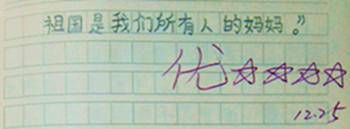 祖国是我们所有人的妈妈。”
优☆☆☆☆
12.25